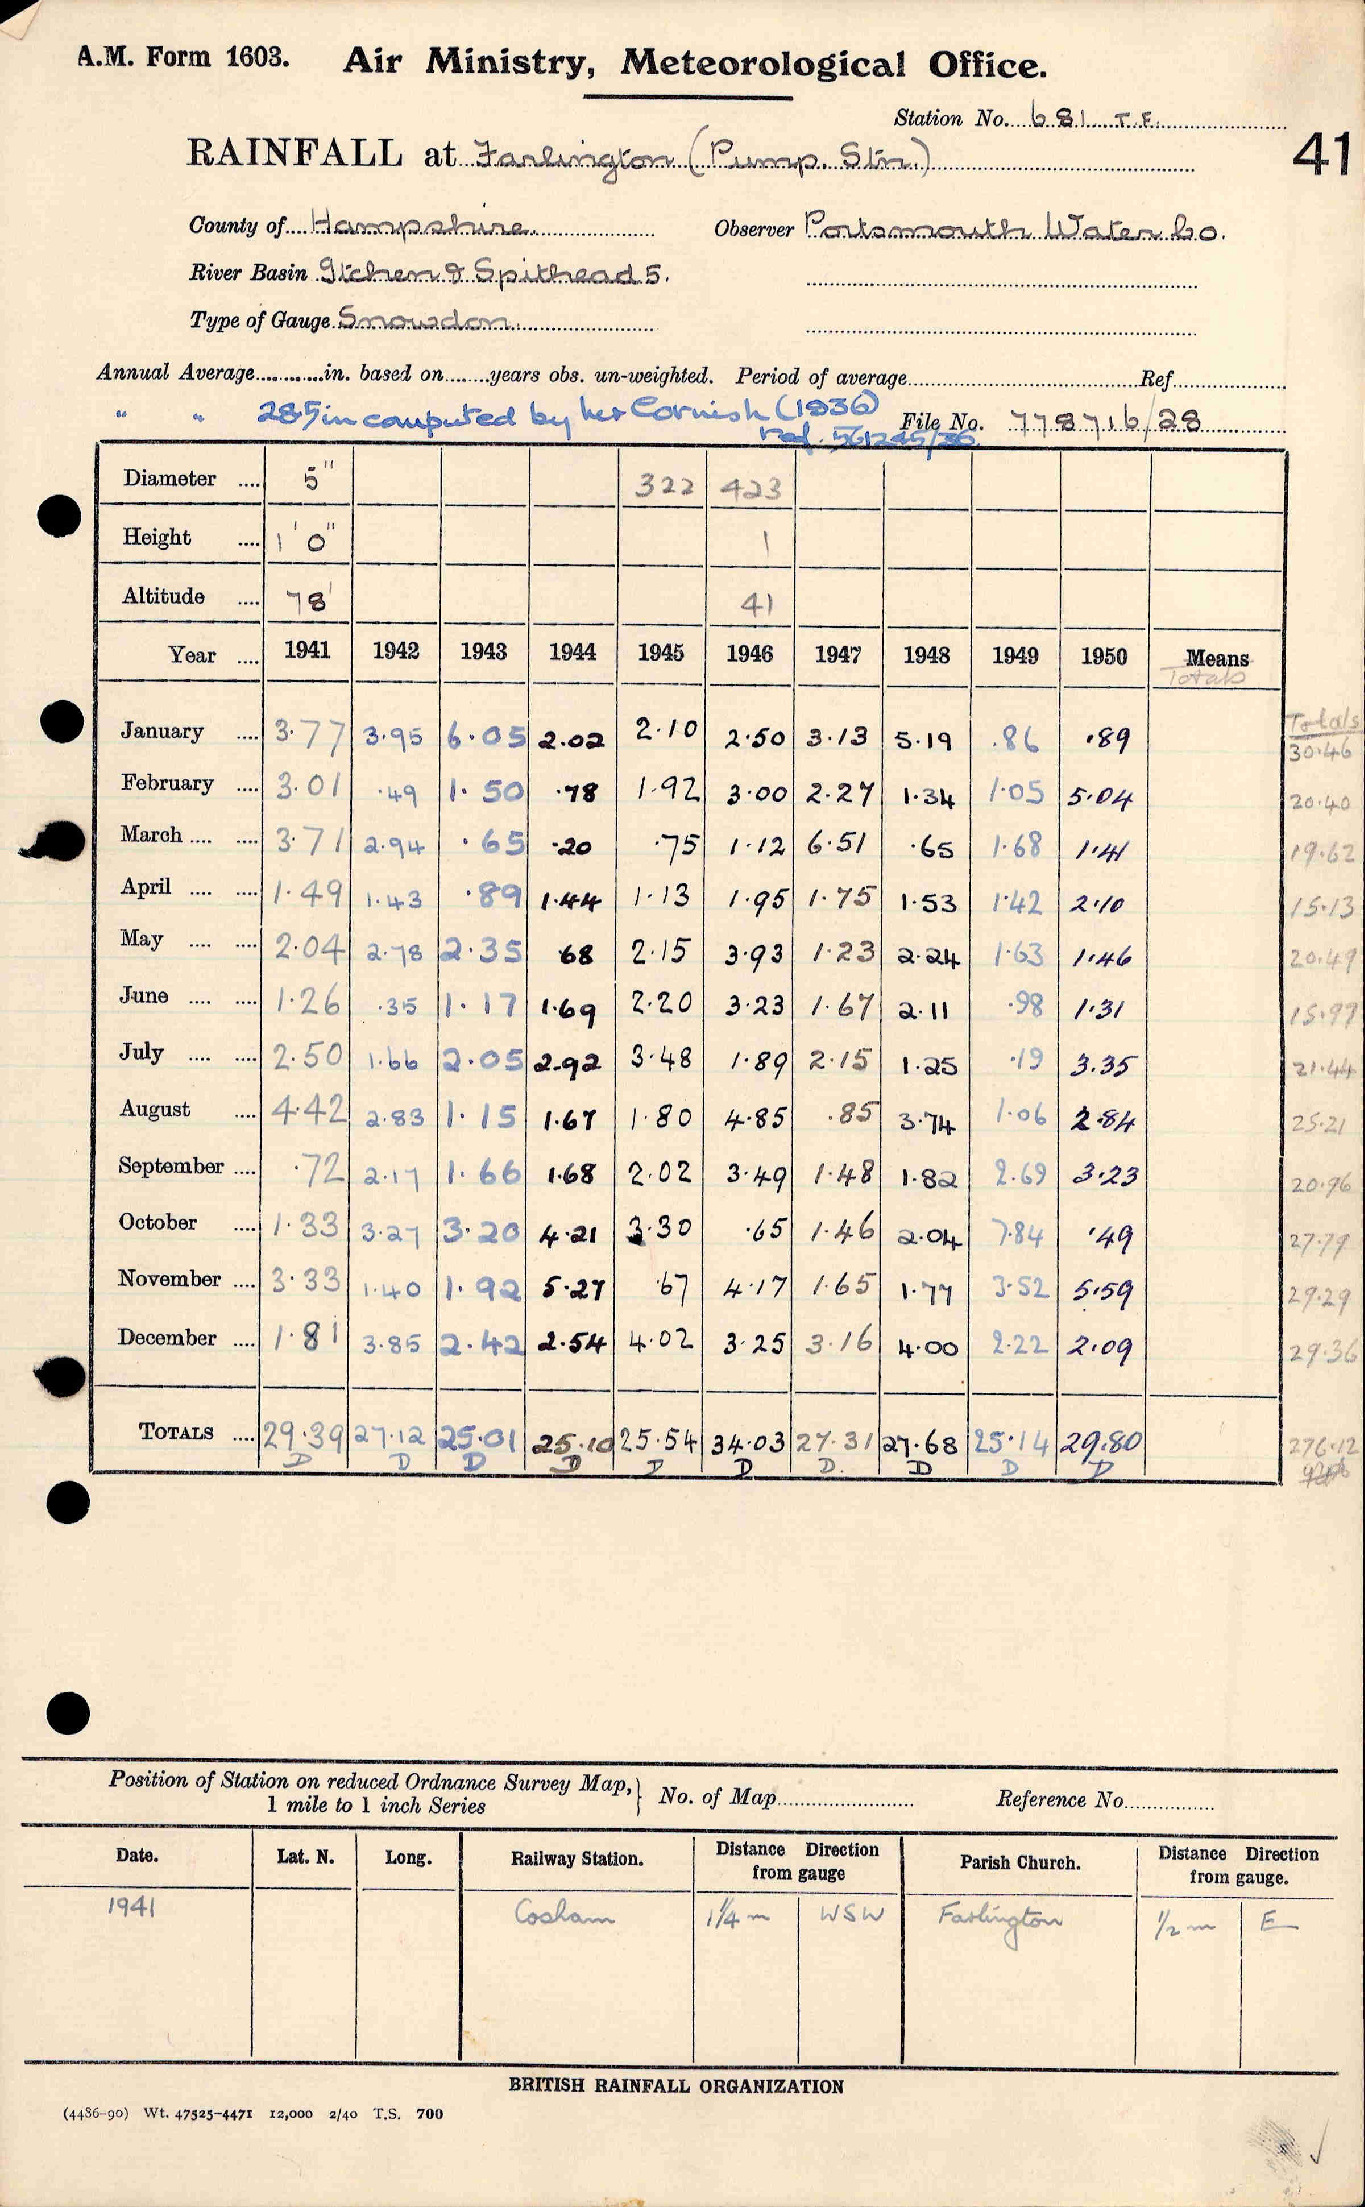 A.M. Form 1603. Air Ministry, Meteorological Office.
Station No. 681 T.E.
41
RAINFALL at Farlington (Pump. Stn.)
County of Hampshire. Observer Portsmouth Water Co.
River Basin Itchen & Spithead 5.
Type of Gauge Snowdon.
Annual Average............in. based on........years obs. un-weighted. Period of average........Ref........
" " 28.5 in computed by Cornish (1936) File No. 778716/28
ref. 561245/36
Diameter .... 5" 322 423
Height .... 1' 0" 1
Altitude .... 78' 41
Year .... 1941 1942 1943 1944 1945 1946 1947 1948 1949 1950 Means
Totals
Totals
January .... 3.77 3.95 6.05 2.02 2.10 2.50 3.13 5.19 .86 .89 30.46
February .... 3.01 .49 1.50 .78 1.92 3.00 2.27 1.34 1.05 5.04 20.40
March .... .... 3.71 2.94 .65 .20 .75 1.12 6.51 .65 1.68 1.41 19.62
April .... .... 1.49 1.43 .89 1.44 1.13 1.95 1.75 1.53 1.42 2.10 15.13
May .... .... 2.04 2.78 2.35 .68 2.15 3.93 1.23 2.24 1.63 1.46 20.49
June .... .... 1.26 .35 1.17 1.69 2.20 3.23 1.67 2.11 .98 1.31 15.97
July .... .... 2.50 1.66 2.05 2.92 3.48 1.89 2.15 1.25 .19 3.35 21.44
August .... 4.42 2.83 1.15 1.67 1.80 4.85 .85 3.74 1.06 2.84 25.21
September .... .72 2.17 1.66 1.68 2.02 3.49 1.48 1.82 2.69 3.23 20.96
October .... 1.33 3.27 3.20 4.21 3.30 .65 1.46 2.04 7.84 .49 27.79
November .... 3.33 1.40 1.92 5.27 .67 4.17 1.65 1.77 3.52 5.59 29.29
December .... 1.81 3.85 2.42 2.54 4.02 3.25 3.16 4.00 2.22 2.09 29.36
TOTALS .... 29.39 27.12 25.01 25.10 25.54 34.03 27.31 27.68 25.14 29.80 276.12
D D D D D D D. D D D
Position of Station on reduced Ordnance Survey Map, } No. of Map............ Reference No............
1 mile to 1 inch Series
Date. Lat. N. Long. Railway Station. Distance Direction from gauge Parish Church. Distance Direction from gauge.
1941 Cosham 1¼ m WSW Farlington ½ m E
BRITISH RAINFALL ORGANIZATION
(4486-90) Wt. 47525-4471 12,000 2/40 T.S. 700